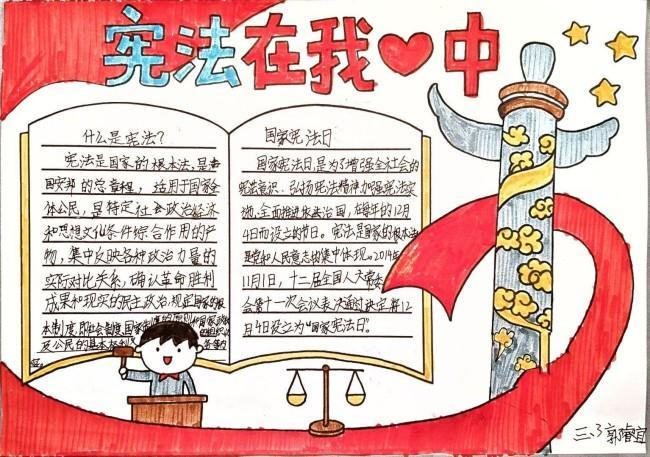 宪法在我中
什么是宪法?
宪法是国家的根本法,是
国安邦的总章程,适用于国家全
体公民,是特定社会政治经济
和思想文化条件综合作用的产
物,集中反映各种政治力量的
实际对比关系,确认革命胜利
成果和现实的民主政治,规定国家的根
本制度,即社会制度、国家
及公民的基本权利
国家宪法日
国家宪法日是为了增强全社会的
宪法意识、弘扬宪法精神、加强宪法实
施、全面推进依法治国,在每年的12月
4日而设立的节日。宪法是国家的根本法
是党和人民意志的集中体现。2014年
11月1日,十二届全国人大常委
会第十一次会议表决通过决定,将12
月4日设立为“国家宪法日”。
三、3 郭睿宜